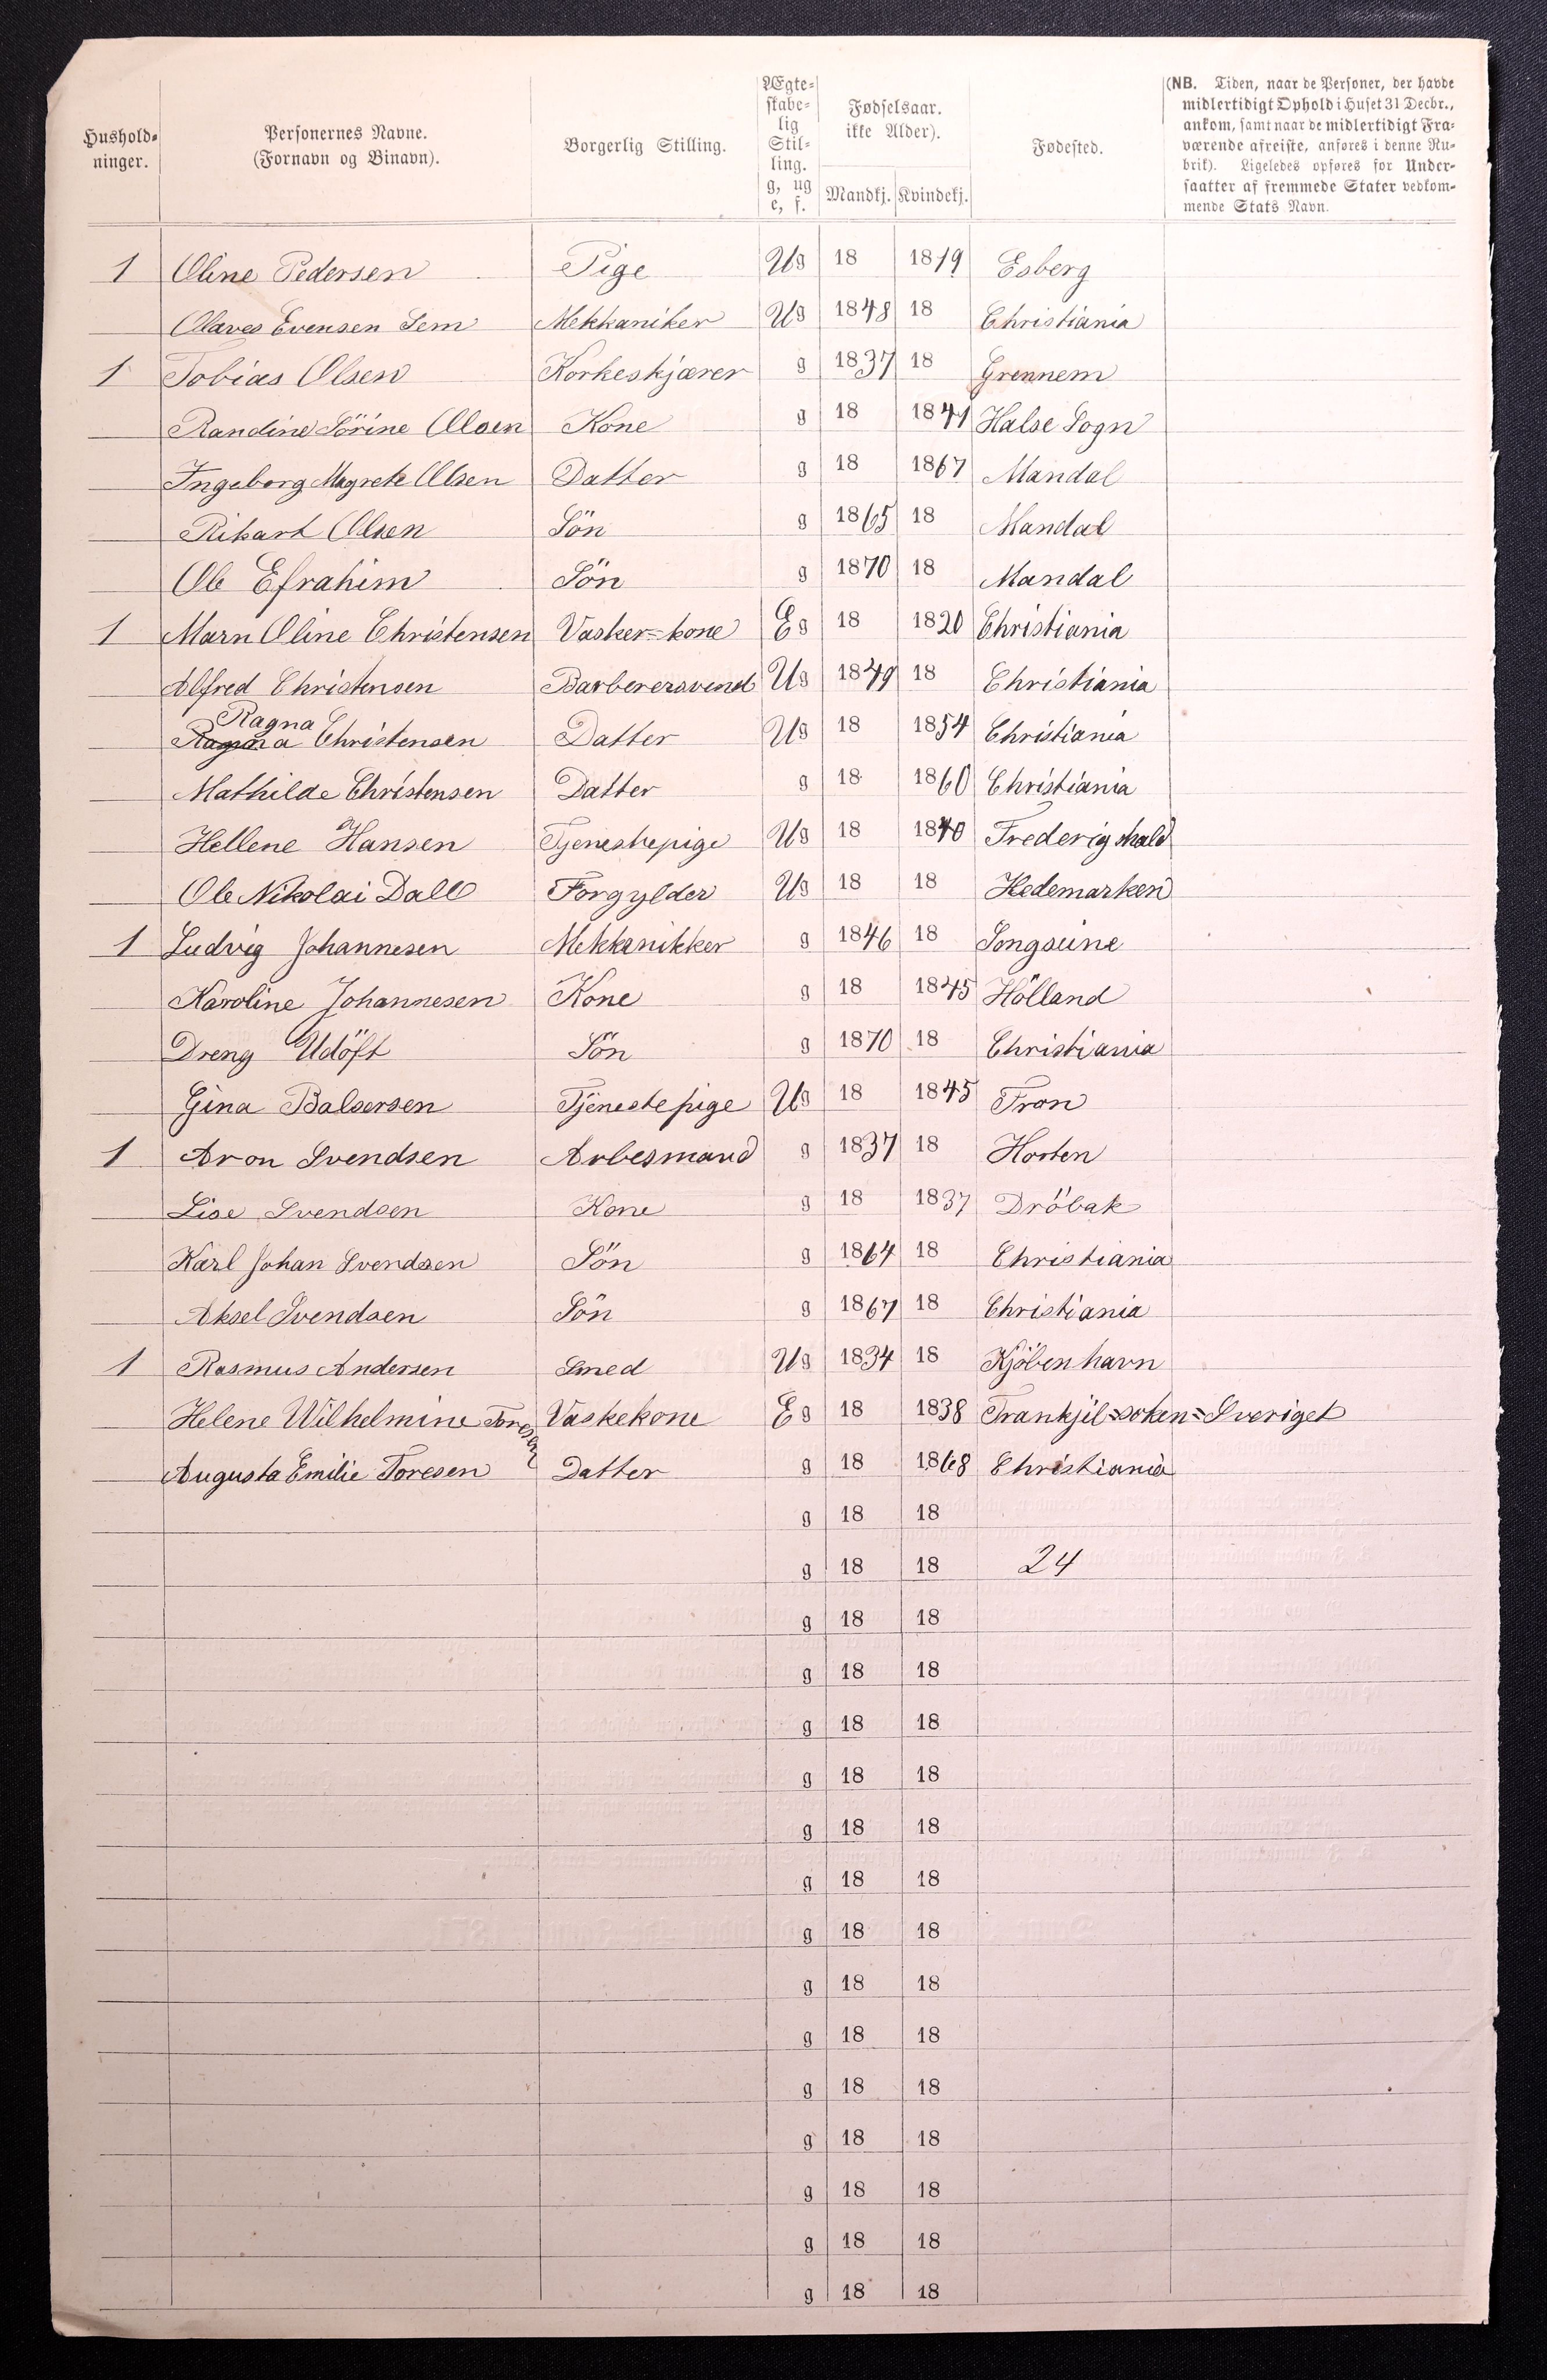 Hushold=
ninger.
Personernes Navne.
(Fornavn og Binavn).
Borgerlig Stilling.
Ægte=
skabe=
lig
Stil=
ling.
g, ug
e, f.
Fødselsaar.
ikke Alder).
Mandkj. Kvindekj.
Fødested.
(NB. Tiden, naar de Personer, der havde
midlertidigt Ophold i Huset 31 Decbr.,
ankom, samt naar de midlertidigt Fra=
værende afreiste, anføres i denne Ru=
brik). Ligeledes opføres for Under=
saatter af fremmede Stater vedkom=
mende Stats Navn.
1 Oline Pedersen Pige Ug 18 1819 Esberg
Olaves Evensen Sem Mekkaniker Ug 1848 18 Christiania
1 Tobias Olsen Korkeskjærer g 1837 18 Grennem
Randine Sörine Olsen Kone g 18 1841 Halse Sogn
Ingeborg Magrete Olsen Datter g 18 1867 Mandal
Rikart Olsen Sön g 1865 18 Mandal
Ole Efrahim Sön g 1870 18 Mandal
1 Marn Oline Christensen Vasker=kone Eg 18 1820 Christiania
Alfred Christensen Barberersvend Ug 1849 18 Christiania
Ragna
Christensen Datter Ug 18 1854 Christiania
Mathilde Christensen Datter g 18 1860 Christiania
Hellene Hansen Tjenestepige Ug 18 1840 Frederigshald
Ole Nikolai Dall Forgylder Ug 18 18 Hedemarken
1 Ludvig Johannesen Mekkanikker g 1846 18 Songsuine
Karoline Johannesen Kone g 18 1845 Hölland
Dreng Udöft Sön g 1870 18 Christiania
Gina Balsersen Tjenestepige Ug 18 1845 Fron
1 Aron Svendsen Arbesmand g 1837 18 Horten
Lise Svendsen Kone g 18 1837 Dröbak
Karl Johan Svendsen Sön g 1864 18 Christiania
Aksel Svendsen Sön g 1867 18 Christiania
1 Rasmus Andersen Smed Ug 1834 18 Kjöbenhavn
Helene Wilhelmine Toresen Vaskekone Eg 18 1838 Trankjil=soken=Sveriget
Augusta Emilie Toresen Datter g 18 1868 Christiania
g 18 18
g 18 18 24
g 18 18
g 18 18
g 18 18
g 18 18
g 18 18
g 18 18
g 18 18
g 18 18
g 18 18
g 18 18
g 18 18
g 18 18
g 18 18
g 18 18